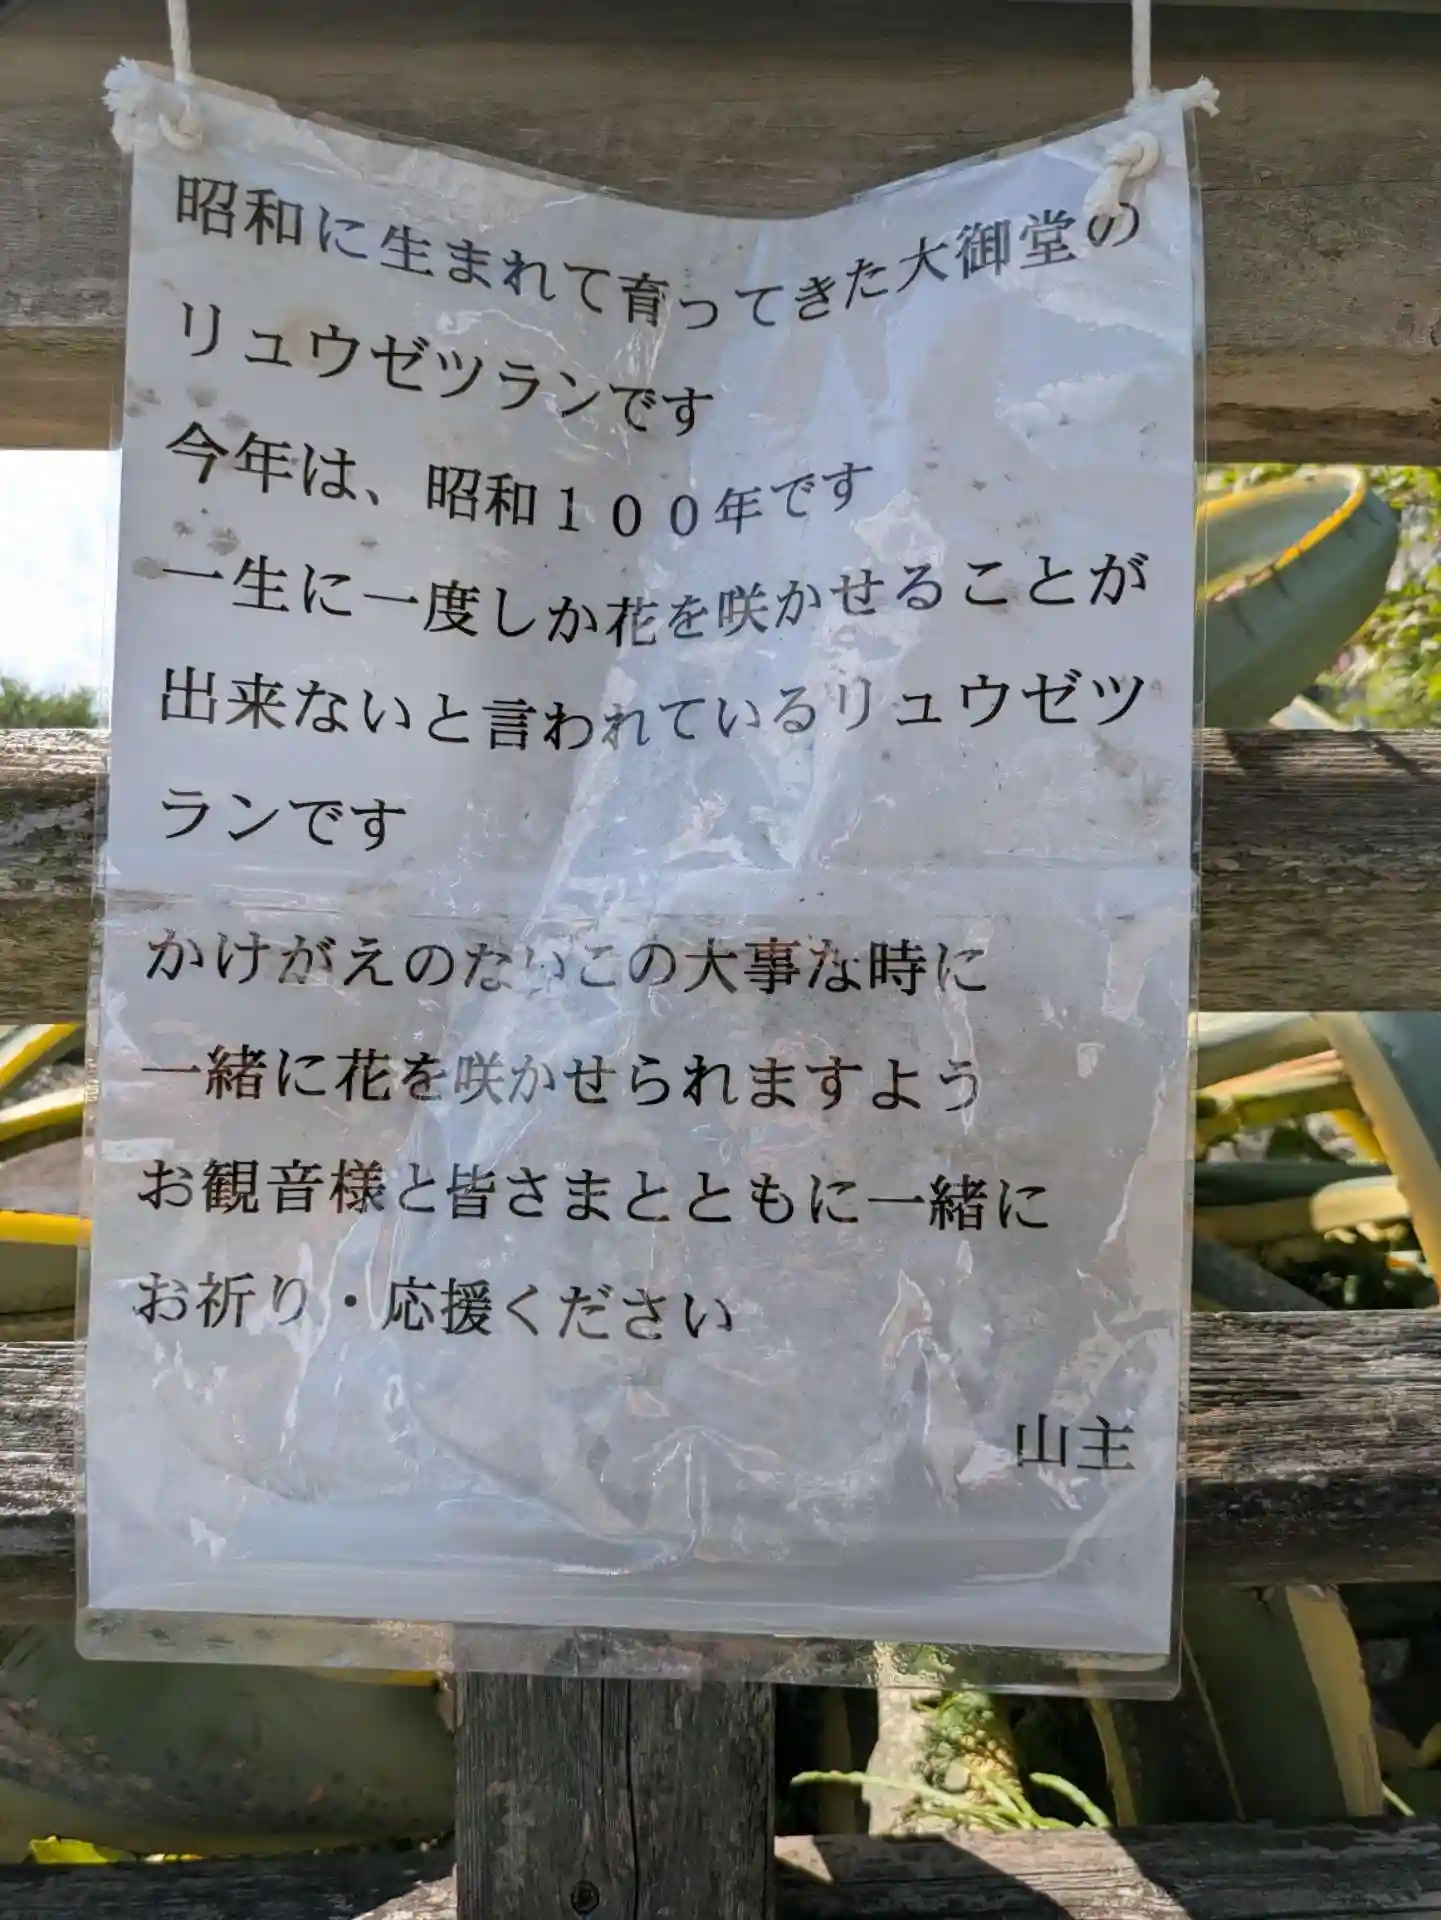 昭和に生まれて育ってきた大御堂の
リュウゼツランです
今年は、昭和１００年です
一生に一度しか花を咲かせることが
出来ないと言われているリュウゼツ
ランです
かけがえのないこの大事な時に
一緒に花を咲かせられますよう
お観音様と皆さまとともに一緒に
お祈り・応援ください
山主